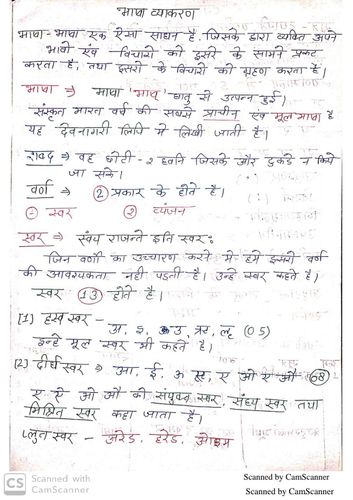 भाषा व्याकरण
भाषा - भाषा एक ऐसा साधन है, जिसके द्वारा व्यक्ति अपने
भावों एवं विचारों को दूसरे के सामने प्रकट
करता है, तथा दूसरों के विचारों को ग्रहण करता है।
भाषा ⇒ भाषा 'भाष्' धातु से उत्पन्न हुई।
संस्कृत भारत वर्ष की सबसे प्राचीन एवं मूल भाषा है
यह देवनागरी लिपि में लिखी जाती है।
शब्द ⇒ वह छोटी-२ ध्वनि जिसके और टुकडे न किये
जा सके।
वर्ण ⇒ 2 प्रकार के होते है।
① स्वर ② व्यंजन
स्वर ⇒ स्वंय राजन्ते इति स्वर:
जिन वर्णो का उच्चारण करते में हमें दूसरे वर्ण
की आवश्यकता नही पडती है। उन्हे स्वर कहते है।
स्वर 13 होते है।
[1] हस्व स्वर - अ, इ, उ, ऋ, लृ (05)
इन्हे मूल स्वर भी कहते है।
[2] दीर्घ स्वर ⇒ आ, ई, ऊ, ॠ, ए ओ ऐ औ 08
ए ऐ ओ औ को संयुक्त स्वर, संध्य स्वर तथा
मिश्रित स्वर कहा जाता है।
प्लुत स्वर -
CS Scanned with
CamScanner
Scanned by CamScanner
Scanned by CamScanner